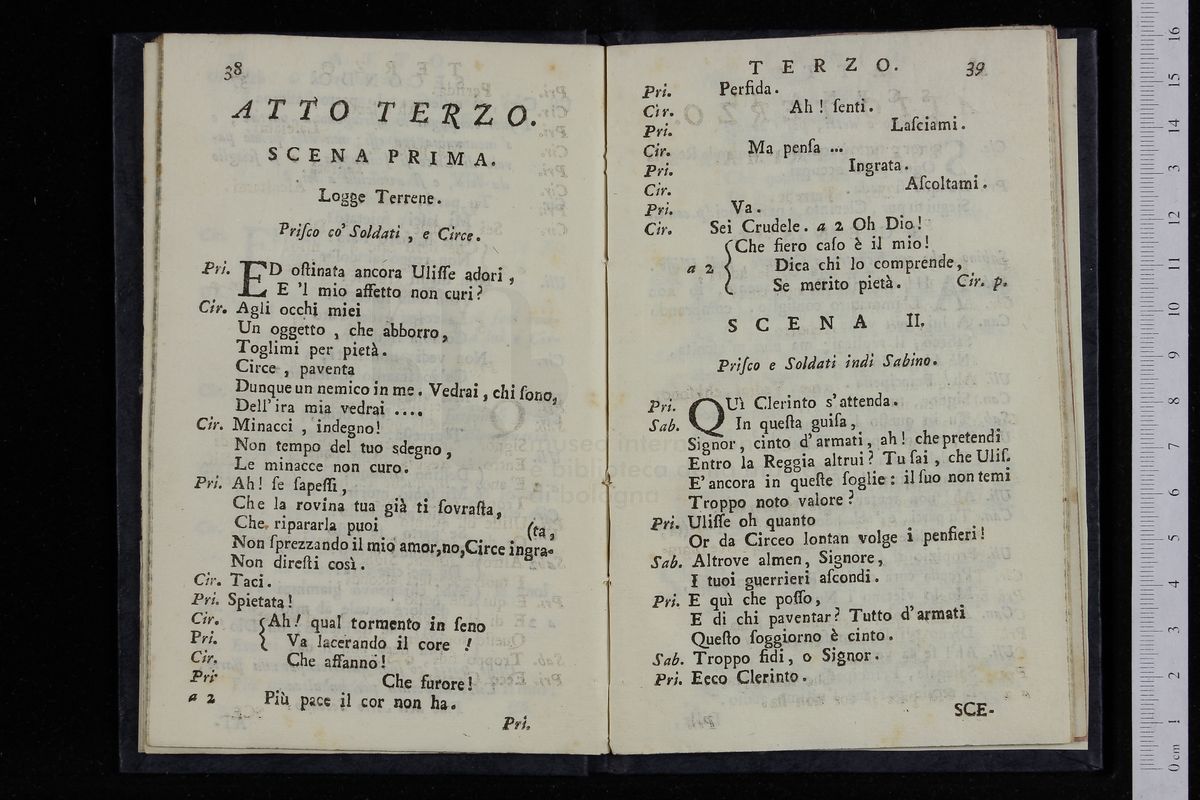 38
ATTO TERZO.
SCENA PRIMA.
Logge Terrene.
Priſco co' Soldati , e Circe.
Pri. ED oſtinata ancora Uliſſe adori ,
E 'l mio affetto non curi?
Cir. Agli occhi miei
Un oggetto , che abborro,
Toglimi per pietà.
Circe , paventa
Dunque un nemico in me. Vedrai , chi ſono,
Dell' ira mia vedrai ....
Cir. Minacci , indegno!
Non tempo del tuo sdegno,
Le minacce non curo.
Pri. Ah! ſe ſapeſſi,
Che la rovina tua già ti ſovraſta,
Che ripararla puoi (ta,
Non ſprezzando il mio amor,no,Circe ingra-
Non direſti così.
Cir. Taci.
Pri. Spietata!
Cir. Ah! qual tormento in ſeno
Pri. Va lacerando il core !
Cir. Che affanno!
Pri Che furore!
a 2 Più pace il cor non ha.
Pri.
TERZO. 39
Pri. Perfida.
Cir. Ah! ſenti.
Pri. Laſciami.
Cir. Ma penſa ...
Pri. Ingrata.
Cir. Aſcoltami.
Pri. Va.
Cir. Sei Crudele. a 2 Oh Dio!
Che fiero caſo è il mio!
a 2 Dica chi lo comprende,
Se merito pietà. Cir. p.
SCENA II.
Priſco e Soldati indi Sabino.
Pri. QUì Clerinto s'attenda.
Sab. In queſta guiſa,
Signor, cinto d'armati, ah! che pretendi
Entro la Reggia altrui? Tu ſai , che Uliſ.
E' ancora in queſte ſoglie: il ſuo non temi
Troppo noto valore?
Pri. Uliſſe oh quanto
Or da Circeo lontan volge i penſieri!
Sab. Altrove almen, Signore,
I tuoi guerrieri aſcondi.
Pri. E quì che poſſo,
E di chi paventar? Tutto d'armati
Queſto ſoggiorno è cinto.
Sab. Troppo fidi, o Signor.
Pri. Ecco Clerinto.
SCE-